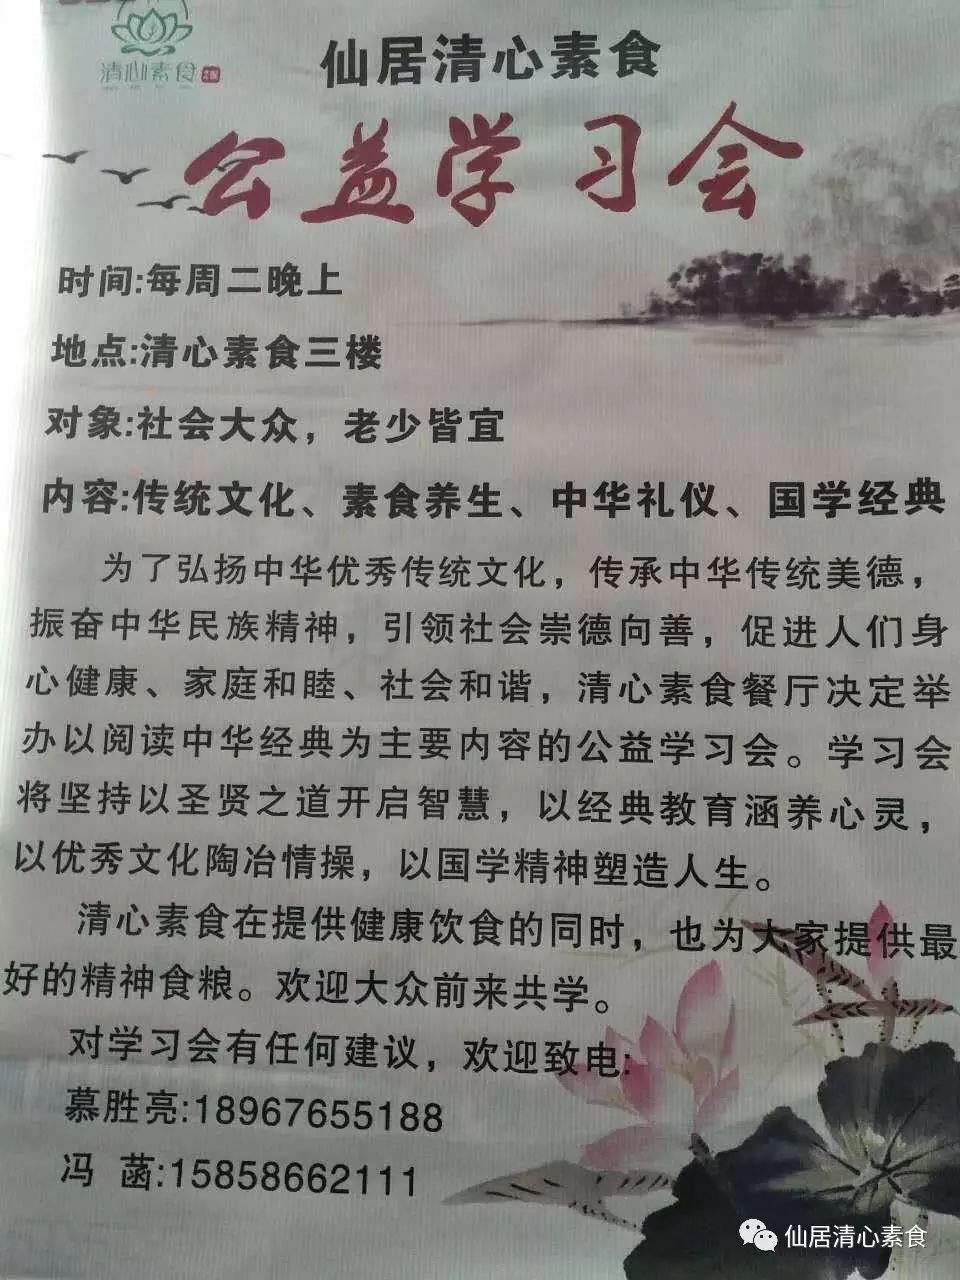 清心素食
仙居清心素食
公益学习会
时间:每周二晚上
地点:清心素食三楼
对象:社会大众，老少皆宜
内容:传统文化、素食养生、中华礼仪、国学经典
为了弘扬中华优秀传统文化，传承中华传统美德，
振奋中华民族精神，引领社会崇德向善，促进人们身
心健康、家庭和睦、社会和谐，清心素食餐厅决定举
办以阅读中华经典为主要内容的公益学习会。学习会
将坚持以圣贤之道开启智慧，以经典教育涵养心灵，
以优秀文化陶冶情操，以国学精神塑造人生。
清心素食在提供健康饮食的同时，也为大家提供最
好的精神食粮。欢迎大众前来共学。
对学习会有任何建议，欢迎致电:
慕胜亮:18967655188
冯 菡:15858662111
仙居清心素食